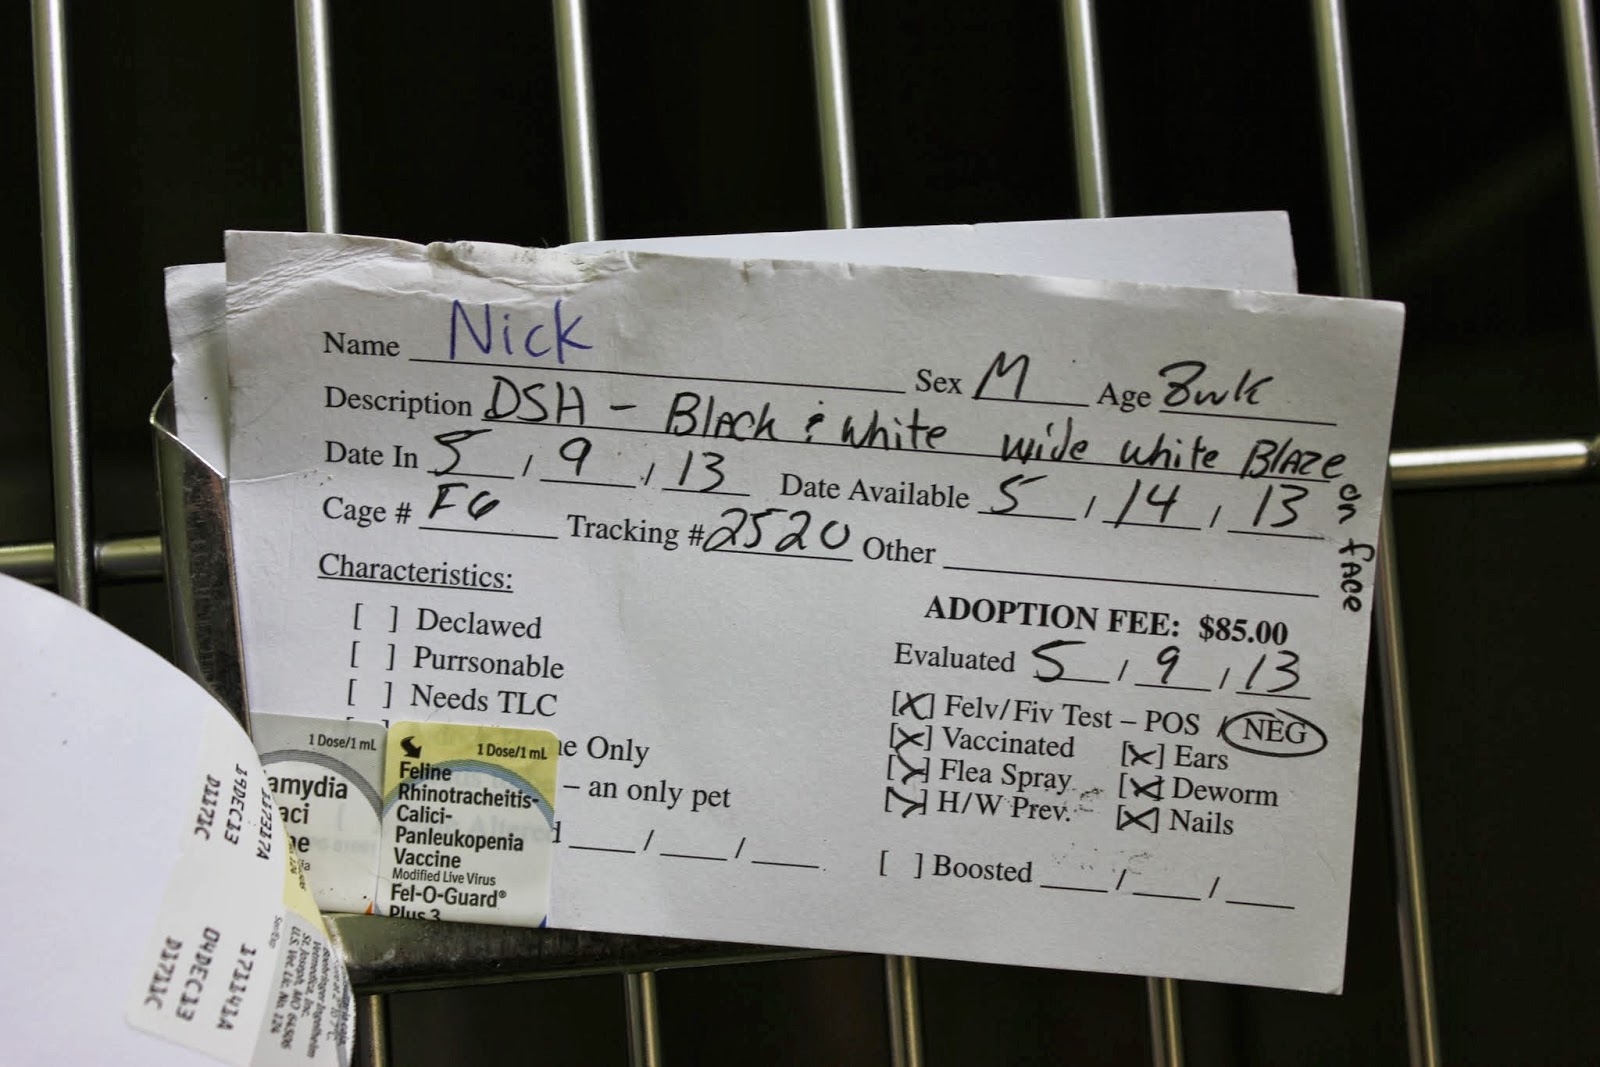 Name Nick Sex M Age 8wk
Description DSH - Black & white wide white Blaze on face
Date In 5 / 9 / 13 Date Available 5 / 14 / 13
Cage # F6 Tracking # 2520 Other
Characteristics:
[ ] Declawed
[ ] Purrsonable
[ ] Needs TLC
e Only
– an only pet
d / /
ADOPTION FEE: $85.00
Evaluated 5 / 9 / 13
[X] Felv/Fiv Test – POS / NEG
[X] Vaccinated [X] Ears
[X] Flea Spray [X] Deworm
[X] H/W Prev. [X] Nails
[ ] Boosted / /
1 Dose/1 mL
amydia
aci
ne
1 Dose/1 mL
Feline
Rhinotracheitis-
Calici-
Panleukopenia
Vaccine
Modified Live Virus
Fel-O-Guard®
Plus 3
1173137A
19DEC13
D171C
171141A
04DEC13
D1711C
Boehringer Ingelheim
Vetmedica, Inc.
St. Joseph, MO 64506
U.S. Vet. Lic. No. 124